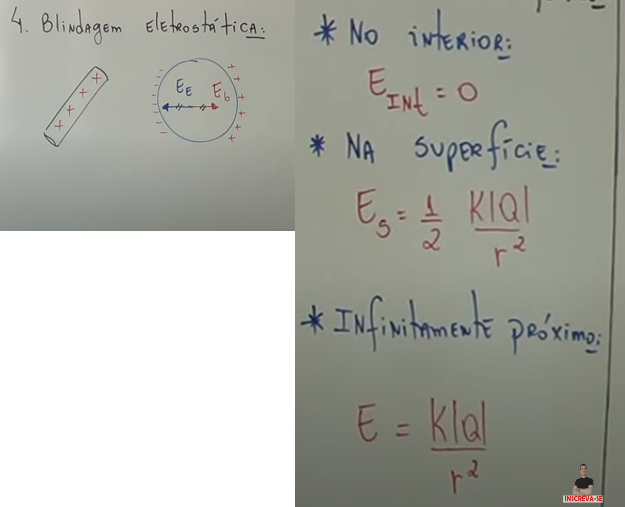 4. Blindagem Eletrostática:
+ + + +
E_E E_b
* No interior:
E_INt = 0
* Na superfície:
E_s = 1/2 K|Q|/r²
* Infinitamente próximo:
E = K|Q|/r²
INSCREVA-SE